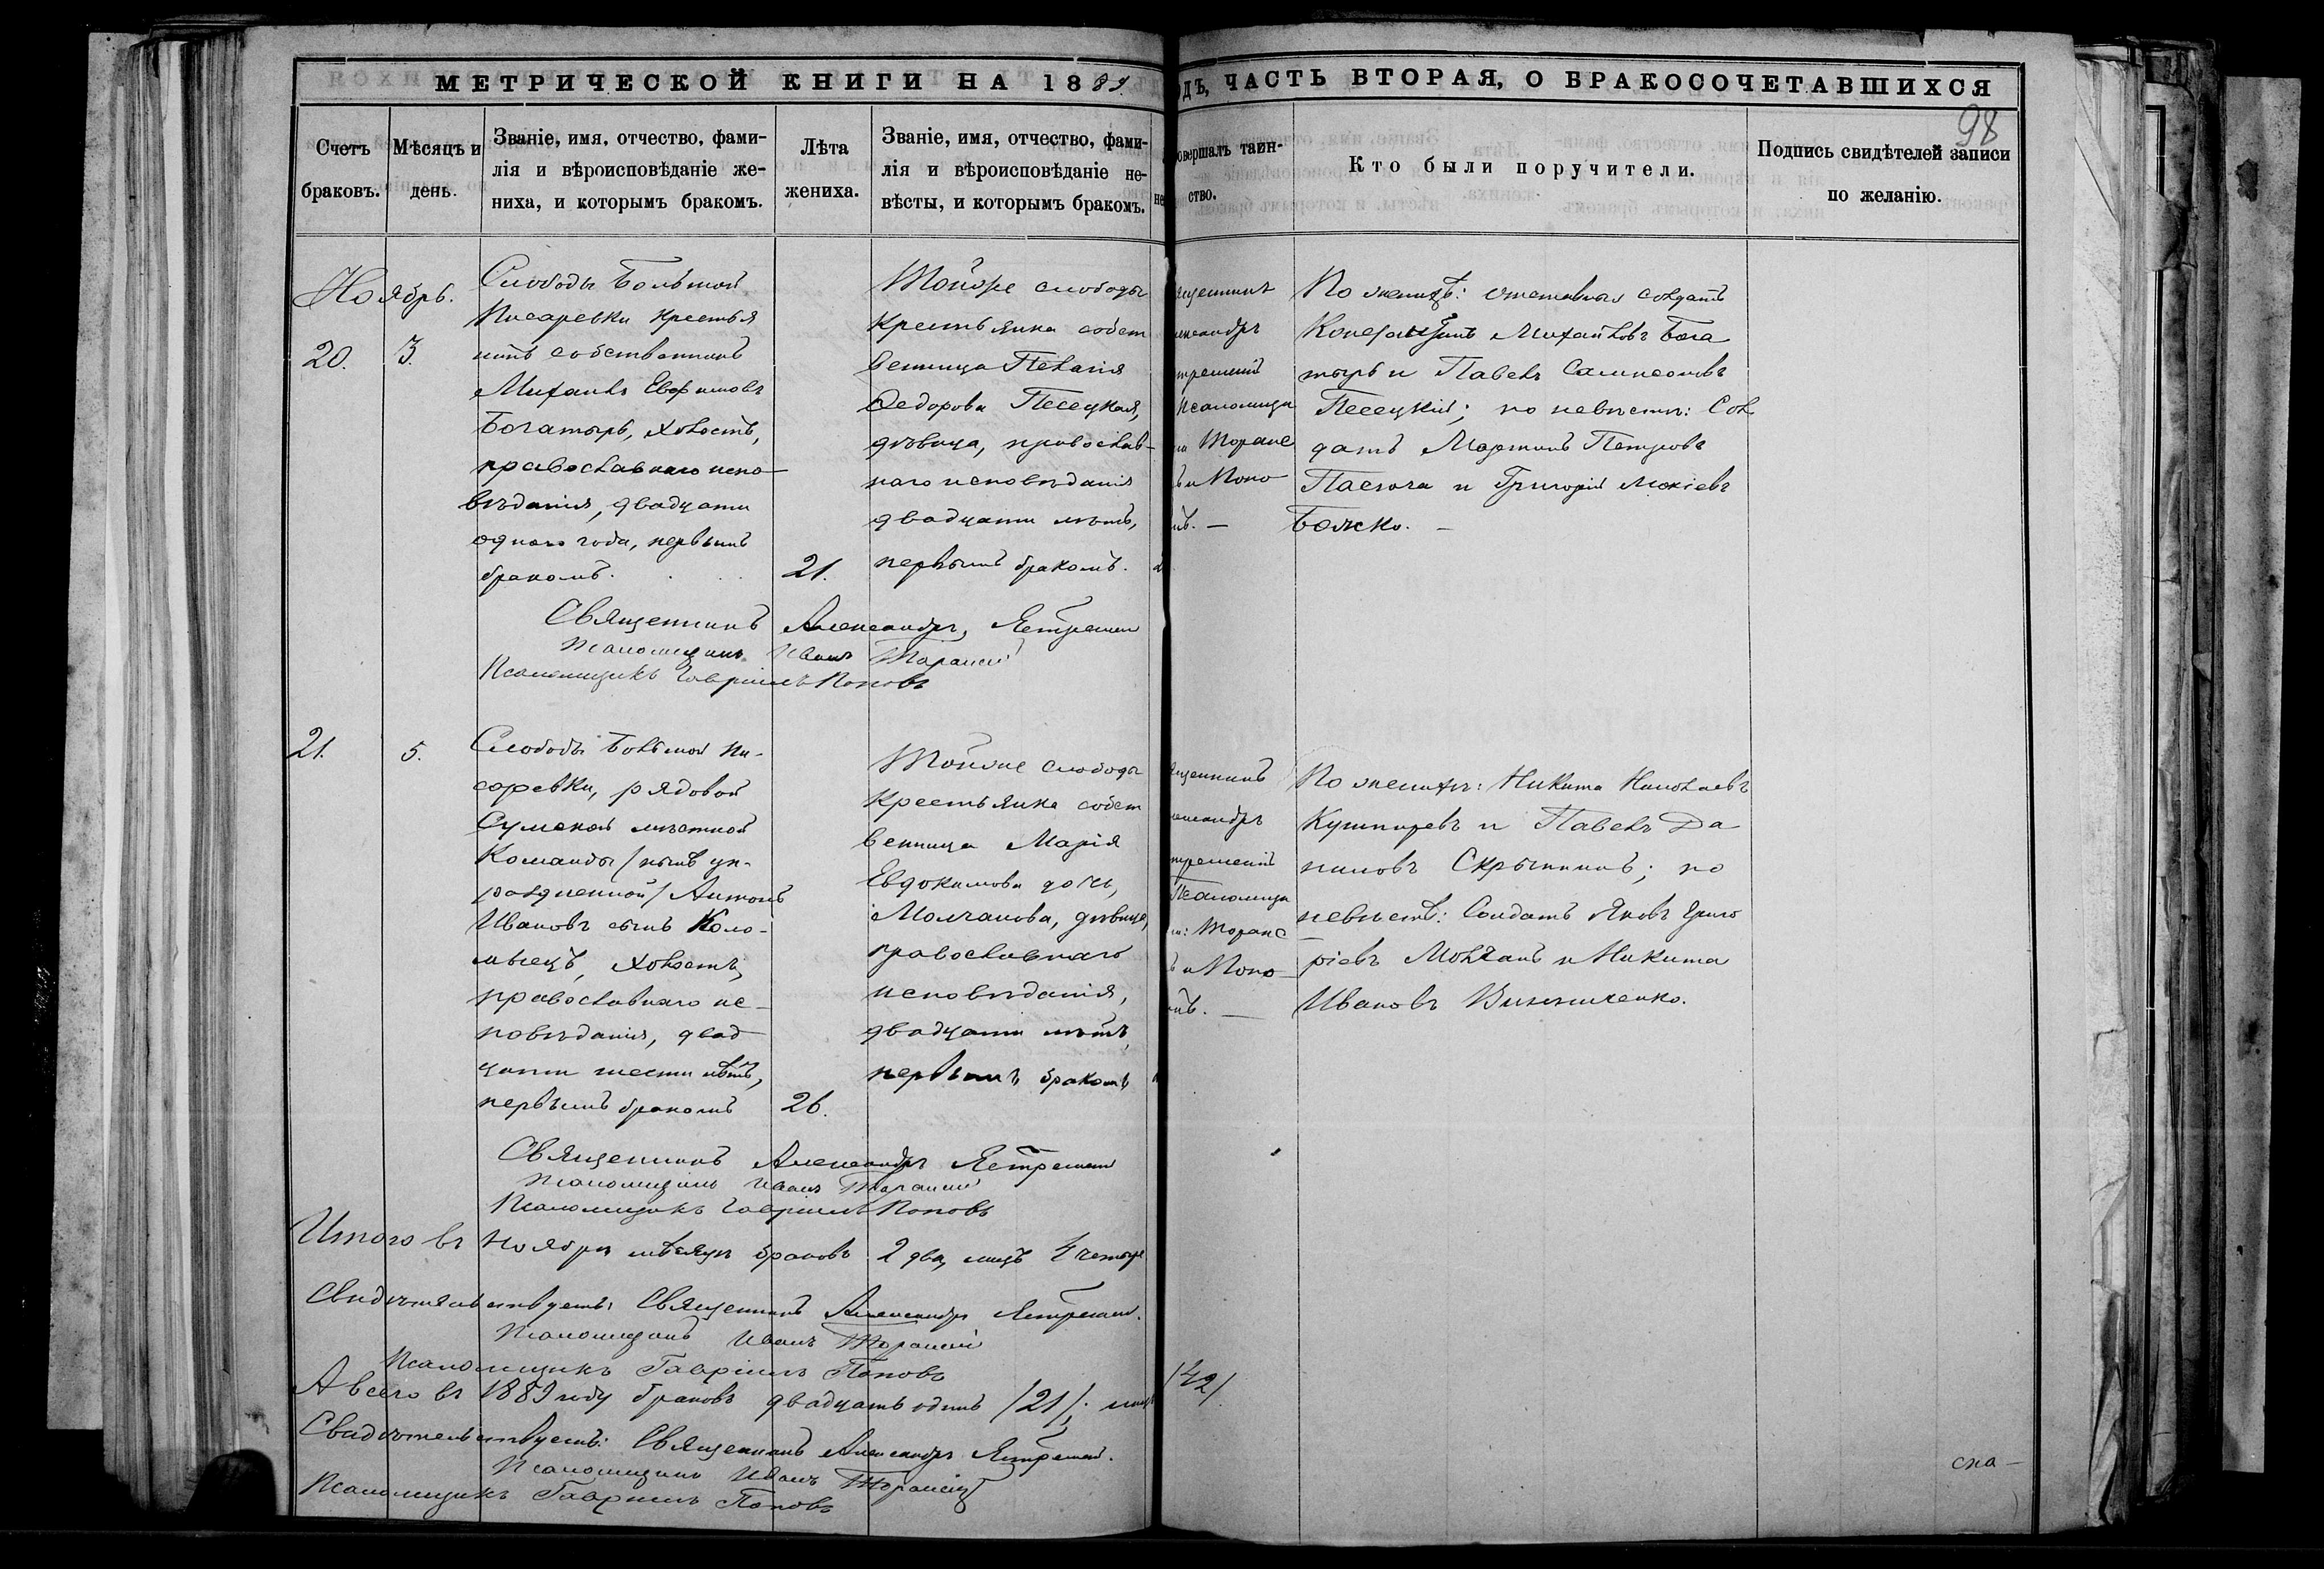 МЕТРИЧЕСКОЙ КНИГИ НА 1889.
ДЪ, ЧАСТЬ ВТОРАЯ, О БРАКОСОЧЕТАВШИХСЯ
98
Счетъ
браковъ.
Мѣсяцъ и
день.
Званіе, имя, отчество, фами-
лія и вѣроисповѣданіе же-
ниха, и которымъ бракомъ.
Лѣта
жениха.
Званіе, имя, отчество, фами-
лія и вѣроисповѣданіе не-
вѣсты, и которымъ бракомъ.
овершалъ таин-
ство.
Кто были поручители.
Подпись свидѣтелей записи
по желанію.
Ноябрь.
20.
3.
Слободы Большой
Писаревки крестья
нинъ собственникъ
Михаилъ Евфимовъ
Богатырь, холостъ,
православнаго испо-
вѣданія, двадцати
одного года, первымъ
бракомъ.
21.
Тойже слободы
крестьянка собст
венница Пелагія
Федорова Песецкая,
дѣвица, православ-
наго исповѣданія
двадцати лѣтъ,
первымъ бракомъ.
щенникъ
лександръ
стремскій
Псаломщи
Торанс
и Попо
въ. —
По женихѣ: отставной солдатъ
Михайловъ Бога
тырь и Павелъ Сампсоновъ
Песецкій; по невѣстѣ: Сол
датъ Мартинъ Петровъ
и Григорій
Божко. —
Священникъ Александръ
Псаломщикъ Иванъ
Псаломщикъ Гавріилъ Поповъ
21.
5.
Слободы Большой Пи-
саревки, рядовой
Сумской мѣстной
Команды /нынѣ уп-
раздненной/ Антонъ
Ивановъ сынъ Коло-
мыецъ, холостъ,
православнаго ис-
повѣданія, двад-
цати шести лѣтъ,
первымъ бракомъ
26.
Тойже слободы
крестьянка собст
венница Марія
Евдокимова дочь,
Молчанова, дѣвица,
православнаго
исповѣданія,
двадцати лѣтъ,
первымъ бракомъ
щенникъ
лександръ
стремскій
Псаломщи
Торанс
и Попо-
въ. —
По женихѣ: Никита Николаевъ
Кушнаревъ и Павелъ Да
ниловъ Скрыпникъ; по
невѣстѣ: Солдатъ Яковъ Григо
ріевъ Молчанъ и Никита
Ивановъ Винниченко.
Священникъ Александръ
Псаломщикъ Иванъ
Псаломщикъ Гавріилъ Поповъ
Итого въ Ноябрѣ мѣсяцѣ браковъ 2 два, лицъ 4 четыре
Свидѣтельствуетъ: Священникъ Александръ
Псаломщикъ Иванъ
Псаломщикъ Гавріилъ Поповъ
А всего въ 1889 году браковъ двадцать одинъ /21/; лицъ /42/.
Свидѣтельствуетъ: Священникъ Александръ
Псаломщикъ Иванъ
Псаломщикъ Гавріилъ Поповъ
ска-